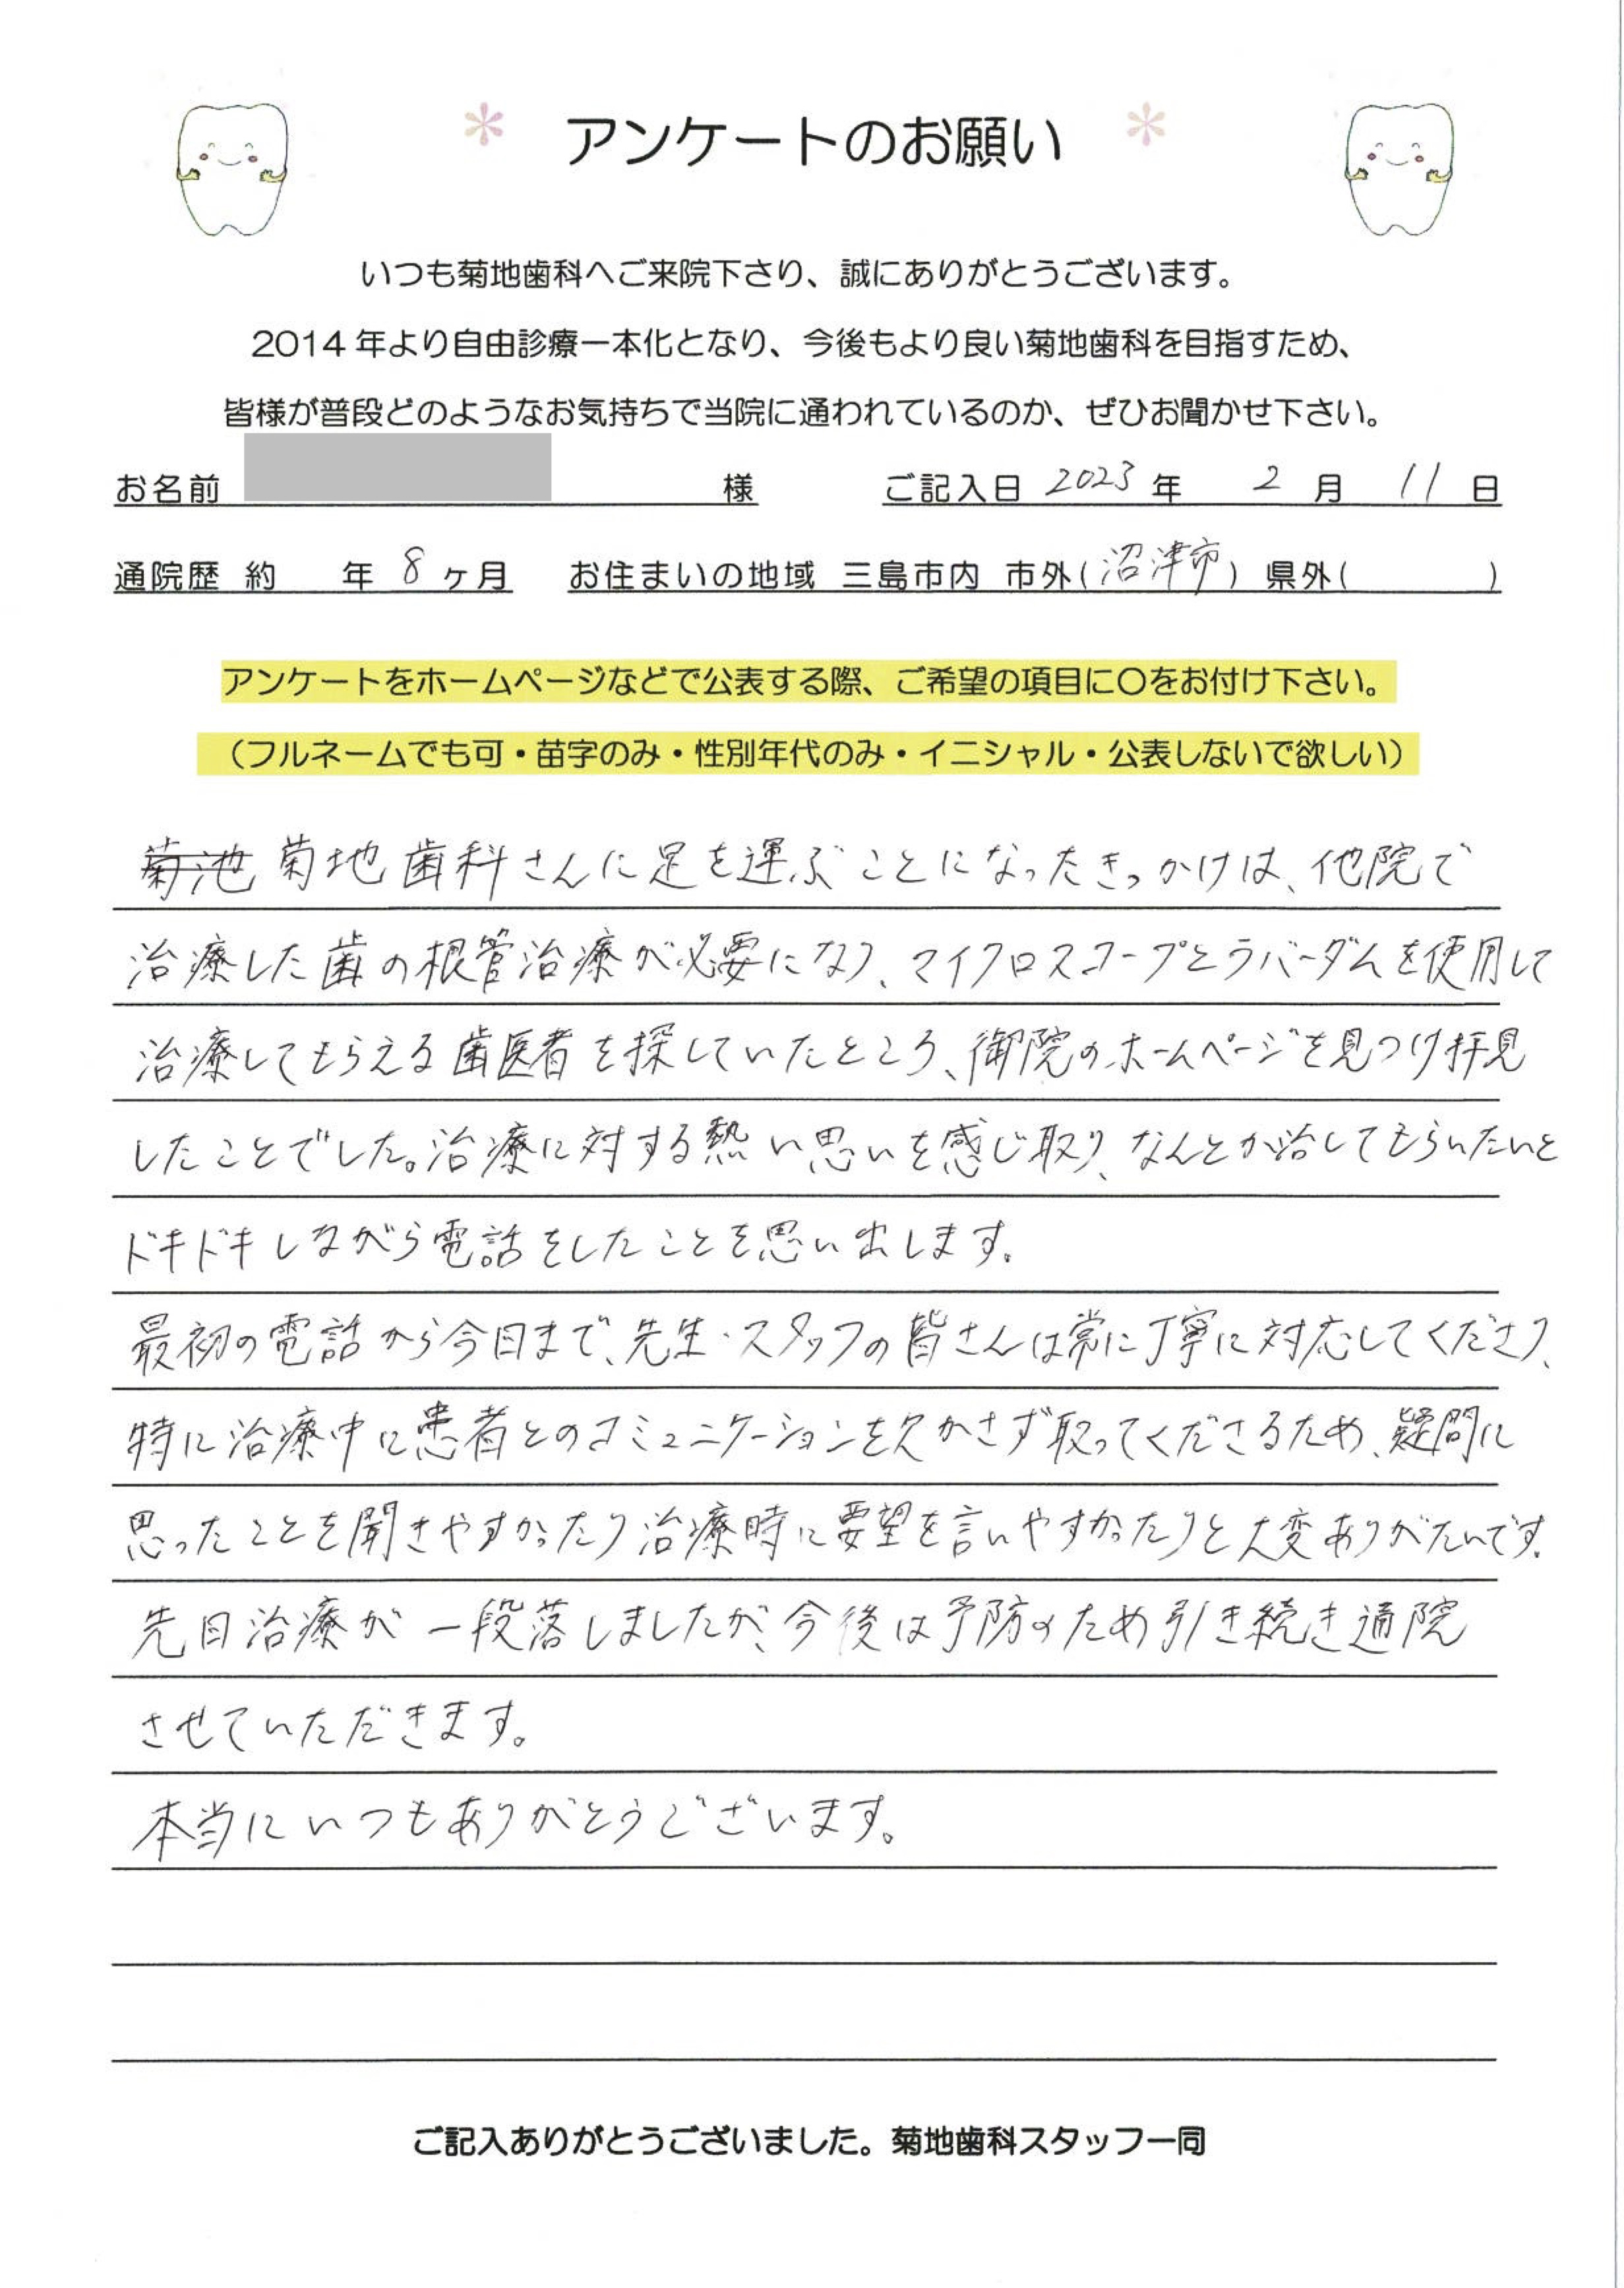 アンケートのお願い
いつも菊地歯科へご来院下さり、誠にありがとうございます。
2014年より自由診療一本化となり、今後もより良い菊地歯科を目指すため、
皆様が普段どのようなお気持ちで当院に通われているのか、ぜひお聞かせ下さい。
お名前 様 ご記入日 2023年 2月 11日
通院歴 約 年 8ヶ月 お住まいの地域 三島市内 市外(沼津市) 県外( )
アンケートをホームページなどで公表する際、ご希望の項目に〇をお付け下さい。
（フルネームでも可・苗字のみ・性別年代のみ・イニシャル・公表しないで欲しい）
菊池 菊地歯科さんに足を運ぶことになったきっかけは、他院で
治療した歯の根管治療が必要になり、マイクロスコープとラバーダムを使用して
治療してもらえる歯医者を探していたところ、御院のホームページを見つけ拝見
したことでした。治療に対する熱い思いを感じ取り、なんとか治してもらいたいと
ドキドキしながら電話をしたことを思い出します。
最初の電話から今日まで、先生・スタッフの皆さんは常に丁寧に対応してくださり、
特に治療中に患者とのコミュニケーションを欠かさず取ってくださるため、疑問に
思ったことを聞きやすかったり治療時に要望を言いやすかったりと大変ありがたいです。
先日治療が一段落しましたが、今後は予防のため引き続き通院
させていただきます。
本当にいつもありがとうございます。
ご記入ありがとうございました。菊地歯科スタッフ一同